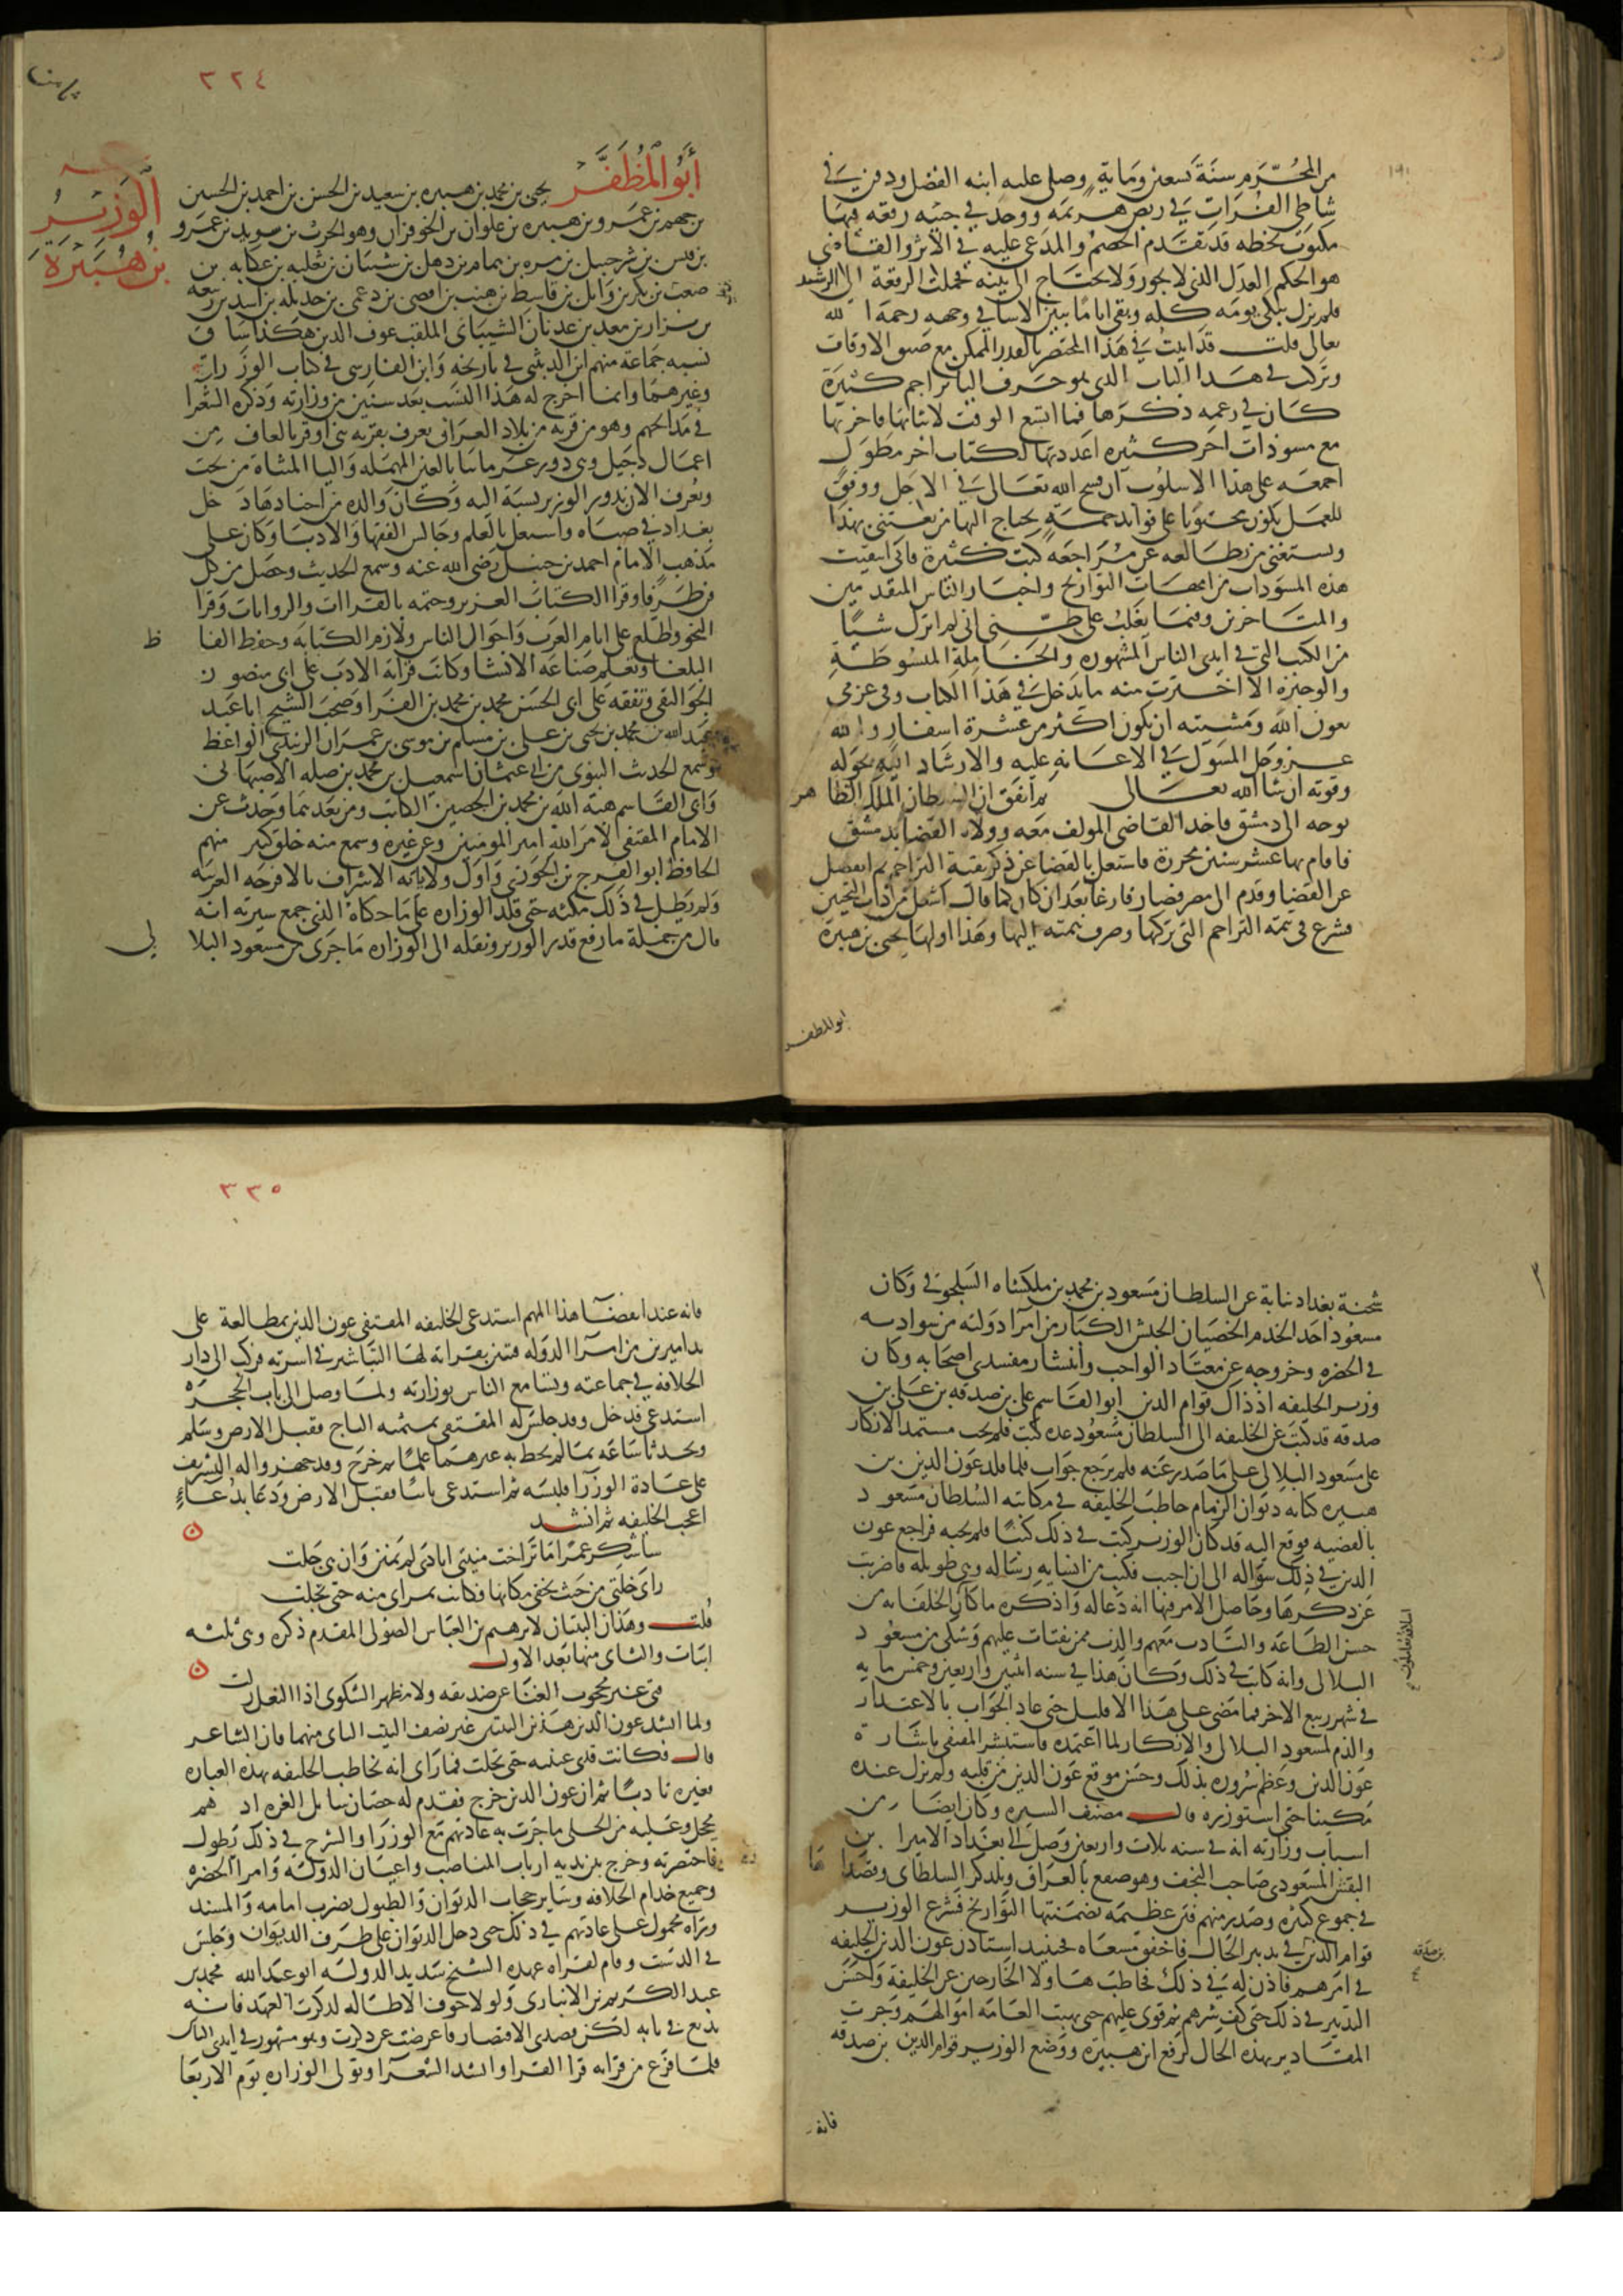 من المحرم سنة تسعين وماية وصلى عليه ابنه الفضل ودفن في
شاطى الفرات في ربض هرثمه ووجد في جيبه رقعه فيها
مكتوب بخطه قد تقدم الخصم والمدعى عليه في الاثر والقاضى
هو الحكم العدل الذى لا يجور ولا يحتاج الى بينه فحملت الرقعة الى الرشيد
فلم يزل يبكى يومه كله وبقى اياما يتبين الاسا في وجهه رحمه الله
تعالى قلت قد اتيت في هذا المختصر بالقدر الممكن مع ضيق الاوقات
وتركت في هذا الباب الذى هو حرف اليا تراجم كثيرة
كان في زعمه ذكرها فما اتسع الوقت لاثباتها فاخرتها
مع مسودات اخر كثيره اعددتها لكتاب اخر مطول
اجمعه على هذا الاسلوب ان فسح الله تعالى في الاجل ووفق
للعمل يكون محتويا على فوايد جمة يحتاج اليها من يعتنى بهذا
ويستغنى من يطالعه عن مراجعة كتب كثيرة فانى انتقيت
هذه المسودات من امهات التواريخ واخبار الناس المتقدمين
والمتاخرين وفيما يغلب على ظنى انى لم اترك شيا
من الكتب التى في ايدى الناس المشهوره والخاملة المبسوطة
والوجيزه الا اخترت منه ما يدخل في هذا الكتاب وفى عزمى
بعون الله ومشيته ان يكون اكثر من عشرة اسفار والله
عز وجل المسول في الاعانه عليه والارشاد اليه بحوله
وقوته ان شا الله تعالى ثم اتفق ان السلطان الملك الظاهر
توجه الى دمشق فاخذ القاضى المولف معه وولاه القضا بدمشق
فاقام بها عشر سنين محررة فاشتغل بالقضا عن ذكر بقية التراجم ثم انفصل
عن القضا وقدم الى مصر فصار فارغا بعد ان كان كما قال اشغل من ذات النحيين
فشرع في تتمة التراجم التى تركها وصرف همته اليها وهذا اولها يحيى بن هبيرة
ابو المظفر
٣٣٤
الوزير
بن هبيرة
أبو المظفر يحيى بن محمد بن هبيره بن سعيد بن الحسن بن احمد بن الحسين
بن جهم بن عمرو بن هبيره بن علوان بن الحوفزان وهو الحرث بن سويد بن عمرو
بن قيس بن شرحبيل بن مره بن همام بن ذهل بن شيبان بن ثعلبه بن عكابه بن
صعب بن بكر بن وايل بن قاسط بن هنب بن افصى بن دعمى بن جديله بن اسد بن ربيعه
بن نزار بن معد بن عدنان الشيبانى الملقب عون الدين هكذا ساق
نسبه جماعة منهم ابن الدبيثى في تاريخه وابن الفارسى في كتاب الوزرات
وغيرهما وانما اخرج له هذا النسب بعد سنين من وزارته وذكره الشعرا
في مدايحهم وهو من قرية من بلاد العراق تعرف بقريه بنى اوقر بالقاف من
اعمال دجيل وهى دور عرمانيا بالعين المهمله واليا المثناة من تحت
وتعرف الان بدور الوزير نسبة اليه وكان والده من اجنادها دخل
بغداد في صباه واشتغل بالعلم وجالس الفقها والادبا وكان على
مذهب الامام احمد بن حنبل رضى الله عنه وسمع الحديث وحصل من كل
فن طرفا وقرا الكتاب العزيز وختمه بالقراات والروايات وقرا
النحو واطلع على ايام العرب واحوال الناس ولازم الكتابه وحفظ الفاظ
البلغا وتعلم صناعه الانشا وكانت قراته الادب على ابى منصور بن
الجواليقى وتفقه على ابى الحسن محمد بن محمد بن الفرا وصحب الشيخ ابا عبد
عبد الله بن محمد بن يحيى بن على بن مسلم بن موسى بن عمران الزبيدى الواعظ
وسمع الحديث النبوى من ابى عثمان اسمعيل بن محمد بن صله الاصبهانى
وابى القاسم هبه الله بن محمد بن الحصين الكاتب ومن بعدهما وحدث عن
الامام المقتفى لامر الله امير المومنين وعن غيره وسمع منه خلق كثير منهم
الحافظ ابو الفرج بن الجوزى واول ولاياته الاشراف بالاقرحه الغربيه
ولم يطل في ذلك مكثه حتى قلد الوزاره على ما حكاه الذى جمع سيرته انه
قال من جملة ما رفع قدر الوزير ونقله الى الوزاره ما جرى من مسعود البلالى
شحنة بغداد نيابة عن السلطان مسعود بن محمد بن ملكشاه السلجوقى وكان
مسعود احد الخدم الخصيان الحبش الكبار من امرا دولته من سوء ادبه
في الحضره وخروجه عن معتاد الواجب وانتشار مفسدى اصحابه وكان
وزير الخليفه اذ ذاك قوام الدين ابو القاسم على بن صدقه بن على بن
صدقه قد كتب عن الخليفه الى السلطان مسعود عدة كتب فلم يجب مستمد الانكار
على مسعود البلالى على ما صدر عنه فلم يرجع جواب فلما قلد عون الدين بن
هبيره كتابه ديوان الزمام خاطب الخليفه في مكاتبه السلطان مسعود
بالقضيه فوقع اليه قد كان الوزير كتب في ذلك كتبا فلم يجبه فراجع عون
الدين في ذلك سؤاله الى ان اجيب فكتب من انشايه رساله وهى طويله فاضربت
عن ذكرها وحاصل الامر فيها انه دعا له واذكره ما كان الخلفا به من
حسن الطاعه والتادب معهم والذب ممن يفتات عليهم وشكى من مسعود
البلالى وانه كاتب في ذلك وكان هذا في سنه اثنين واربعين وخمس مايه
في شهر ربيع الاخر فما مضى على هذا الا قليل حتى عاد الجواب بالاعتذار
والذم لمسعود البلالى والانكار لما اعتمده فاستبشر المقتفى باشارة
عون الدين وعظم سروره بذلك وحسن موقع عون الدين من قلبه ولم يزل عنده
مكينا حتى استوزره قال مصنف السيره وكان ايضا من
اسباب وزارته انه في سنه ثلاث واربعين وصل الى بغداد الامرا بن
البقش المسعودى صاحب اللحف وهو صقع بالعراق ويلدكز السلطانى وقصداها
في جموع كثيره وصدر منهم فتن عظيمه تضمنتها التواريخ فشرع الوزير
قوام الدين في تدبير الحال فاخفق مسعاه فحينيد استاذن عون الدين الخليفه
في امرهم فاذن له في ذلك فخاطب هاولا الخارجين عن الخليفة واحسن
التدبير في ذلك حتى كف شرهم ثم قوى عليهم حتى نهبت العامه اموالهم وجرت
المقادير بهذه الحال لرفع ابن هبيرة ووضع الوزير قوام الدين بن صدقه
فانه
٣٣٥
فانه عند انقضآ هذا المهم استدعى الخليفه المقتفى عون الدين بمطالعة على
يد اميرين من امرآ الدوله فتبين بقراته لها التباشير في اسرته فركب الى دار
الخلافه في جماعته وتسامع الناس بوزارته ولما وصل الى باب الحجره
استدعى فدخل وقد جلس له المقتفى بميمنه التاج فقبل الارض وسلم
وتحدثا ساعه بما لم يحط به غيرهما علما ثم خرج وقد جهز واله التشريف
على عادة الوزرآ فلبسه ثم استدعى ثانيا فقبل الارض ودعا بدعاء
اعجب الخليفه ثم انشد
ساشكر عمرا ما تراخت منيتى ايادى لم تمنن وان هى جلت
راى خلتى من حيث يخفى مكانها فكانت بمراى منه حتى تجلت
قلت وهذان البيتان لابرهيم بن العباس الصولى المقدم ذكره وهى ثلثه
ابيات والثانى منها بعد الاول
فتى غير محجوب الغنا عن صديقه ولا مظهر الشكوى اذا النعل زلت
ولما انشد عون الدين هذين البيتين غير نصف البيت الثانى منهما فان الشاعر
قال فكانت قذى عينيه حتى تجلت فما راى انه يخاطب الخليفه بهذه العباره
فغيره تادبا ثم ان عون الدين خرج فقدم له حصان سايل الغره ادهم
محجل وعليه من الحلى ما جرت به عادتهم مع الوزرا والشرح في ذلك يطول
فاختصرته وخرج بين يديه ارباب المناصب واعيان الدولة وامرا الحضره
وجميع خدام الخلافه وساير حجاب الديوان والطبول تضرب امامه والمسند
وراه محمول على عادتهم في ذلك حتى دخل الديوان على طرف الديوان وجلس
في الدست وقام لقراه عهده الشيخ سديد الدولة ابو عبد الله محمد بن
عبد الكريم بن الانبارى ولولا خوف الاطاله لذكرت العهد فانه
بديع في بابه لكن قصدى الاقتصار فاعرضت عن ذكره وهو مشهور في ايدى الناس
فلما فرغ من قراته قرا القرا وانشد الشعرآ وتولى الوزاره يوم الاربعا